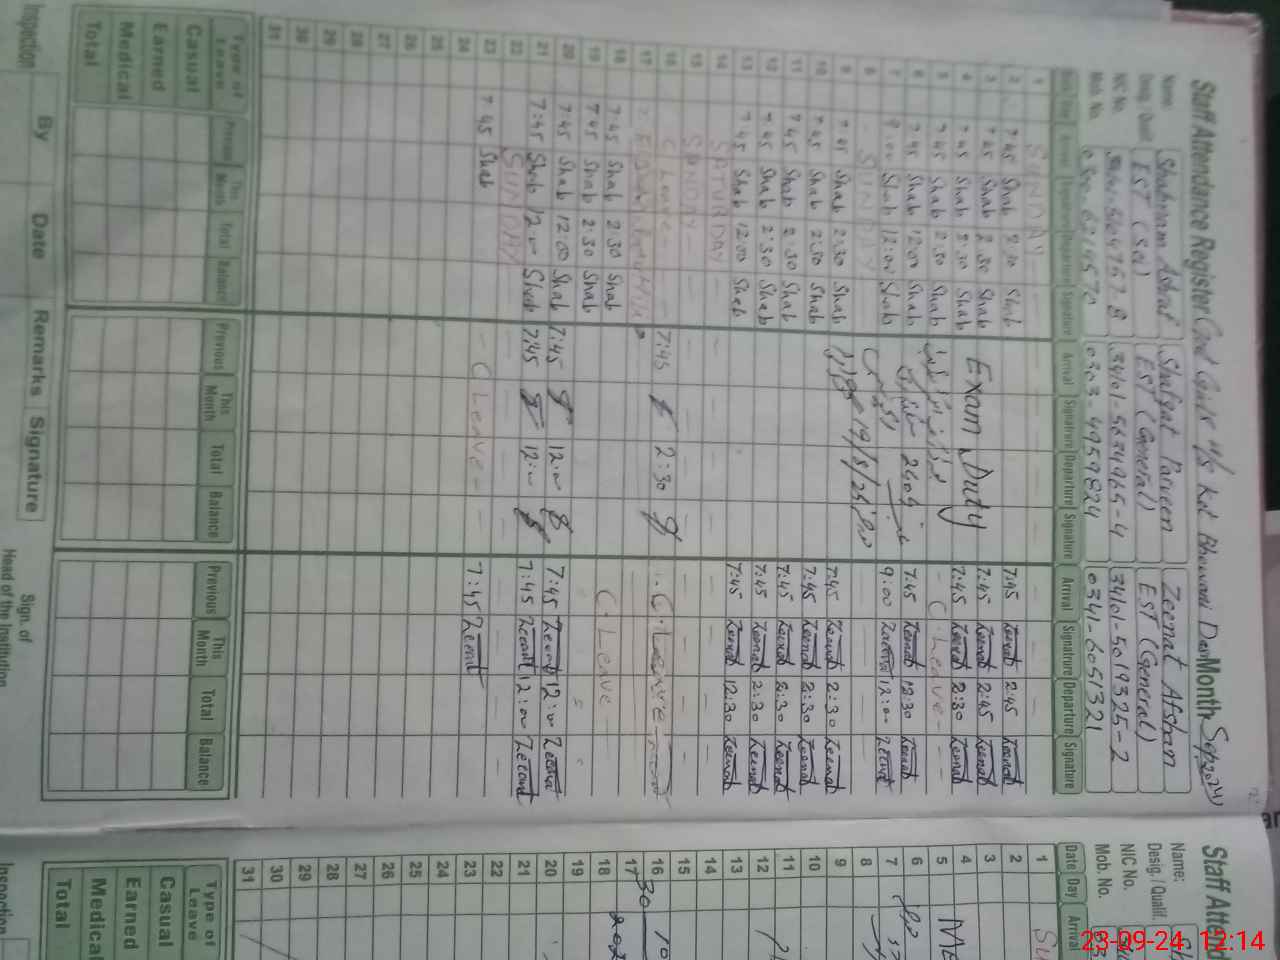 Staff Attendance Register Govt Girls M/S Kot Bhawani Das Month Sep 2024
Name Shabnam Ashraf Shafqat Parveen Zeenat Afshan
Desig./Qualif. EST (Sci) EST (General) EST (General)
NIC No. 34101-5634965-4 34101-5019325-2
Mob. No. 0303-4959824 0341-6051321
Date Day Arrival Signature Departure Signature Arrival Signature Departure Signature Arrival Signature Departure Signature
1 SUNDAY
2 7:45 Shab 2:30 Shab 7:45 Zeenat 2:45 Zeenat
3 7:45 Shab 2:30 Shab Exam Duty 7:45 Zeenat 2:45 Zeenat
4 7:45 Shab 2:30 Shab 7:45 Zeenat 2:30 Zeenat
5 7:45 Shab 2:30 Shab C. Leave
6 7:45 Shab 12:00 Shab 7:45 Zeenat 12:30 Zeenat
7 9:00 Shab 12:00 Shab 9:00 Zeenat 12:00 Zeenat
8 SUNDAY
9 7:45 Shab 2:30 Shab 7:45 Zeenat 2:30 Zeenat
10 7:45 Shab 2:30 Shab 7:45 Zeenat 2:30 Zeenat
11 7:45 Shab 2:30 Shab 7:45 Zeenat 2:30 Zeenat
12 7:45 Shab 2:30 Shab 7:45 Zeenat 2:30 Zeenat
13 7:45 Shab 12:00 Shab 7:45 Zeenat 12:30 Zeenat
14 SATURDAY
15 SUNDAY
16 C Leave 7:45 2:30 C. Leave
17
18 7:45 Shab 2:30 Shab C. Leave
19 7:45 Shab 2:30 Shab
20 7:45 Shab 12:00 Shab 7:45 12:00 7:45 Zeenat 12:00 Zeenat
21 7:45 Shab 12:00 Shab 7:45 12:00 7:45 Zeenat 12:00 Zeenat
22 SUNDAY
23 7:45 Shab C Leave 7:45 Zeenat
24
25
26
27
28
29
30
31
Type of Leave Previous This Month Total Balance Previous This Month Total Balance Previous This Month Total Balance
Casual
Earned
Medical
Total
Inspection By Date Remarks Signature Sign. of
Head of the Institution
Staff Atten
Name:
Desig./Qualif.
NIC No.
Mob. No.
Date Day Arrival
1
2
3
4
5
6
7
8
9
10
11
12
13
14
15
16
17
18
19
20
21
22
23
24
25
26
27
28
29
30
31
Type of Leave
Casual
Earned
Medical
Total
23-09-24 12:14